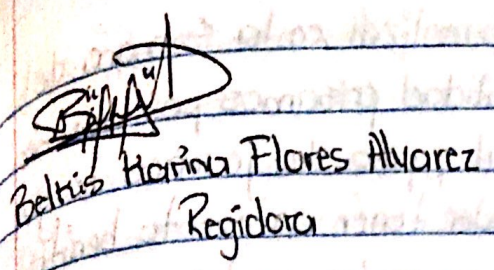 Belkis Karina Flores Alvarez
Regidora